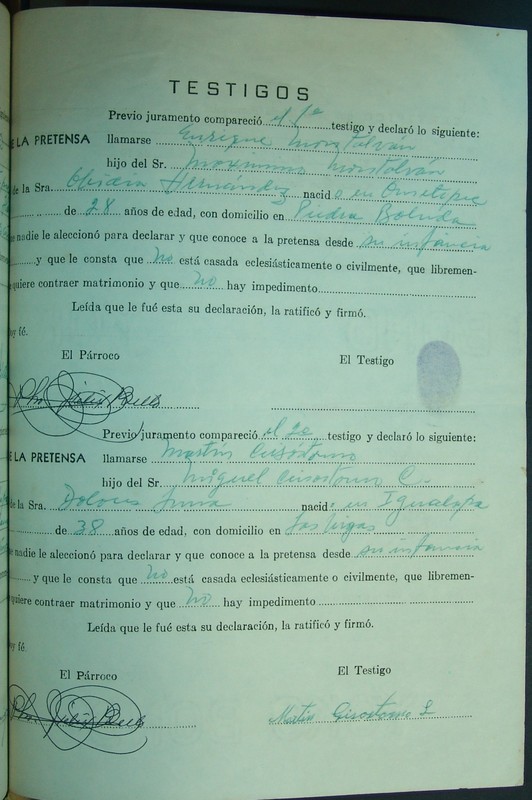 TESTIGOS
Previo juramento compareció el 1º testigo y declaró lo siguiente:
E LA PRETENSA llamarse Enrique Montalván
hijo del Sr. Maximino Montalván
de la Sra. Obidia Hernández nacido en Ometepec
de 28 años de edad, con domicilio en Piedra Boluda
e nadie le aleccionó para declarar y que conoce a la pretensa desde su infancia
y que le consta que no está casada eclesiásticamente o civilmente, que libremen-
quiere contraer matrimonio y que no hay impedimento
Leída que le fué esta su declaración, la ratificó y firmó.
oy fé.
El Párroco El Testigo
Previo juramento compareció el 2º testigo y declaró lo siguiente:
E LA PRETENSA llamarse Martín Crisóstomo
hijo del Sr. Miguel Crisóstomo C.
de la Sra. Dolores nacido en Igualapa
de 38 años de edad, con domicilio en Las Vegas
e nadie le aleccionó para declarar y que conoce a la pretensa desde su infancia
y que le consta que no está casada eclesiásticamente o civilmente, que libremen-
quiere contraer matrimonio y que no hay impedimento
Leída que le fué esta su declaración, la ratificó y firmó.
oy fé.
El Párroco El Testigo
Martin Crisostomo L